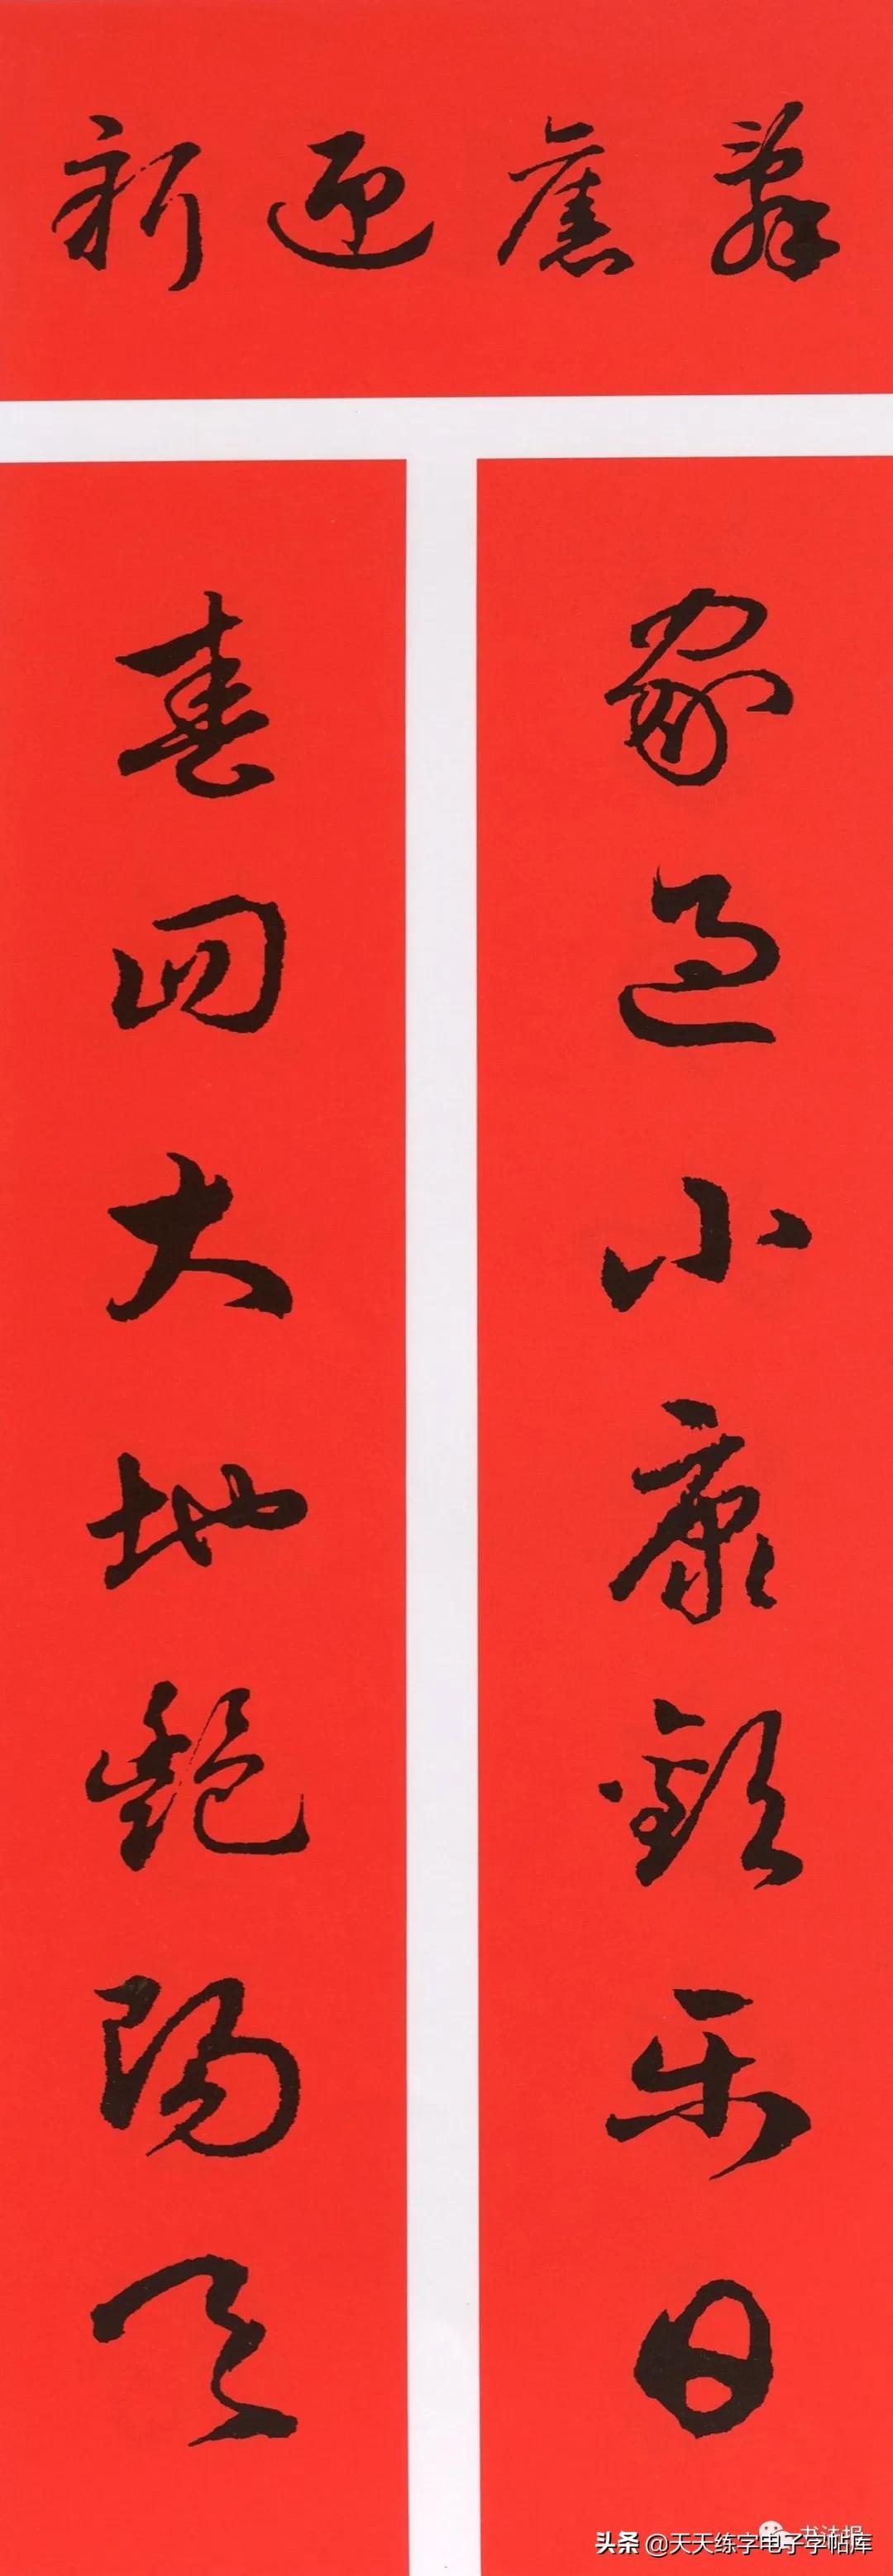 辞旧迎新
家过小康欢乐日
春回大地艳阳天
书法报
头条 @天天练字电子字帖库